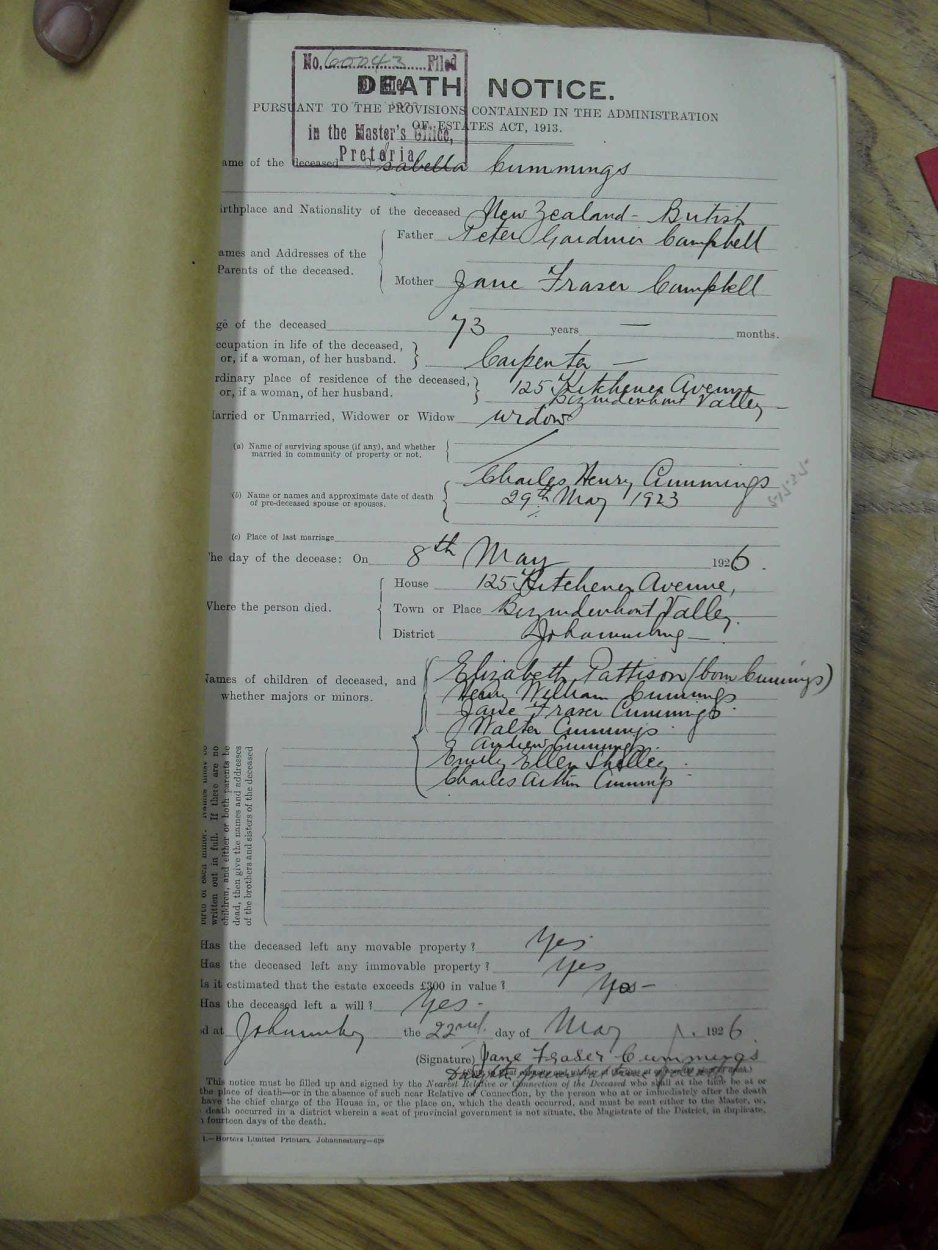 No. 60043 Filed
DEATH NOTICE.
PURSUANT TO THE PROVISIONS CONTAINED IN THE ADMINISTRATION
OF ESTATES ACT, 1913.
in the Master's Office,
Pretoria
ame of the deceased sabella Cummings
irthplace and Nationality of the deceased New Zealand - British
ames and Addresses of the
Parents of the deceased.
Father Peter Gardiner Campbell
Mother Jane Fraser Campbell
ge of the deceased 73 years — months.
ccupation in life of the deceased,
or, if a woman, of her husband.
Carpenter —
rdinary place of residence of the deceased,
or, if a woman, of her husband.
125 Kitchener Avenue
Bezuidenhout Valley —
arried or Unmarried, Widower or Widow widow
(a) Name of surviving spouse (if any), and whether
married in community of property or not.
(b) Name or names and approximate date of death
of pre-deceased spouse or spouses.
Charles Henry Cummings
29th May 1923
(c) Place of last marriage
he day of the decease: On 8th May 1926.
Where the person died.
House 125 Kitchener Avenue,
Town or Place Bezuidenhout Valley.
District Johannesburg —
Names of children of deceased, and
whether majors or minors.
Elizabeth Pattison (born Cummings)
Henry William Cummings
Jane Fraser Cummings.
Walter Cummings
Andrew Cummings.
Emily Ellen Shelley.
Charles Arthur Cummings
birth of each minor. Names must be
written out in full. If there are no
children, and either or both parents be
dead, then give the names and addresses
of the brothers and sisters of the deceased
Has the deceased left any movable property? Yes.
Has the deceased left any immovable property? Yes
Is it estimated that the estate exceeds £300 in value? Yes —
Has the deceased left a will? Yes -
d at Johannesburg the 22nd day of May 1926
(Signature) Jane Fraser Cummings
Daughter
This notice must be filled up and signed by the Nearest Relative or Connection of the Deceased who shall at the time be at or
the place of death—or in the absence of such near Relative or Connection, by the person who at or immediately after the death
have the chief charge of the House in, or the place on, which the death occurred, and must be sent either to the Master, or,
death occurred in a district wherein a seat of provincial government is not situate, the Magistrate of the District, in duplicate,
n fourteen days of the death.
1.—Hortors Limited Printers, Johannesburg—